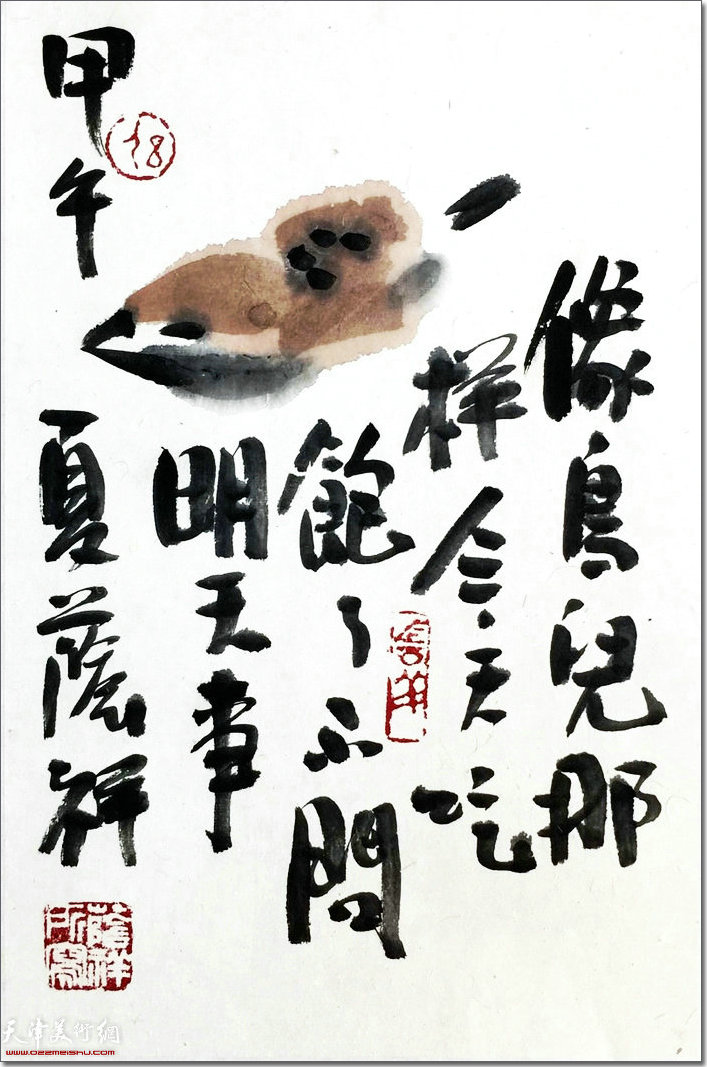 像鳥兒那
樣今天吃
飽了不問
明天事
甲午
夏蔭祥
18
蔭祥
所寫
天津美術網
www.022meishu.com